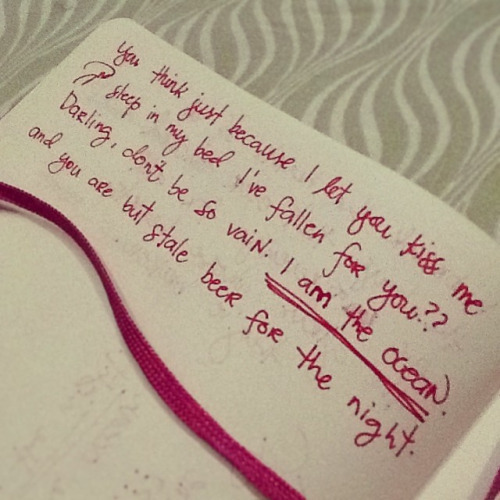 you think just because I let you kiss me
& sleep in my bed I've fallen for you??
Darling, don't be so vain. I am the ocean.
and you are but stale beer for the night.